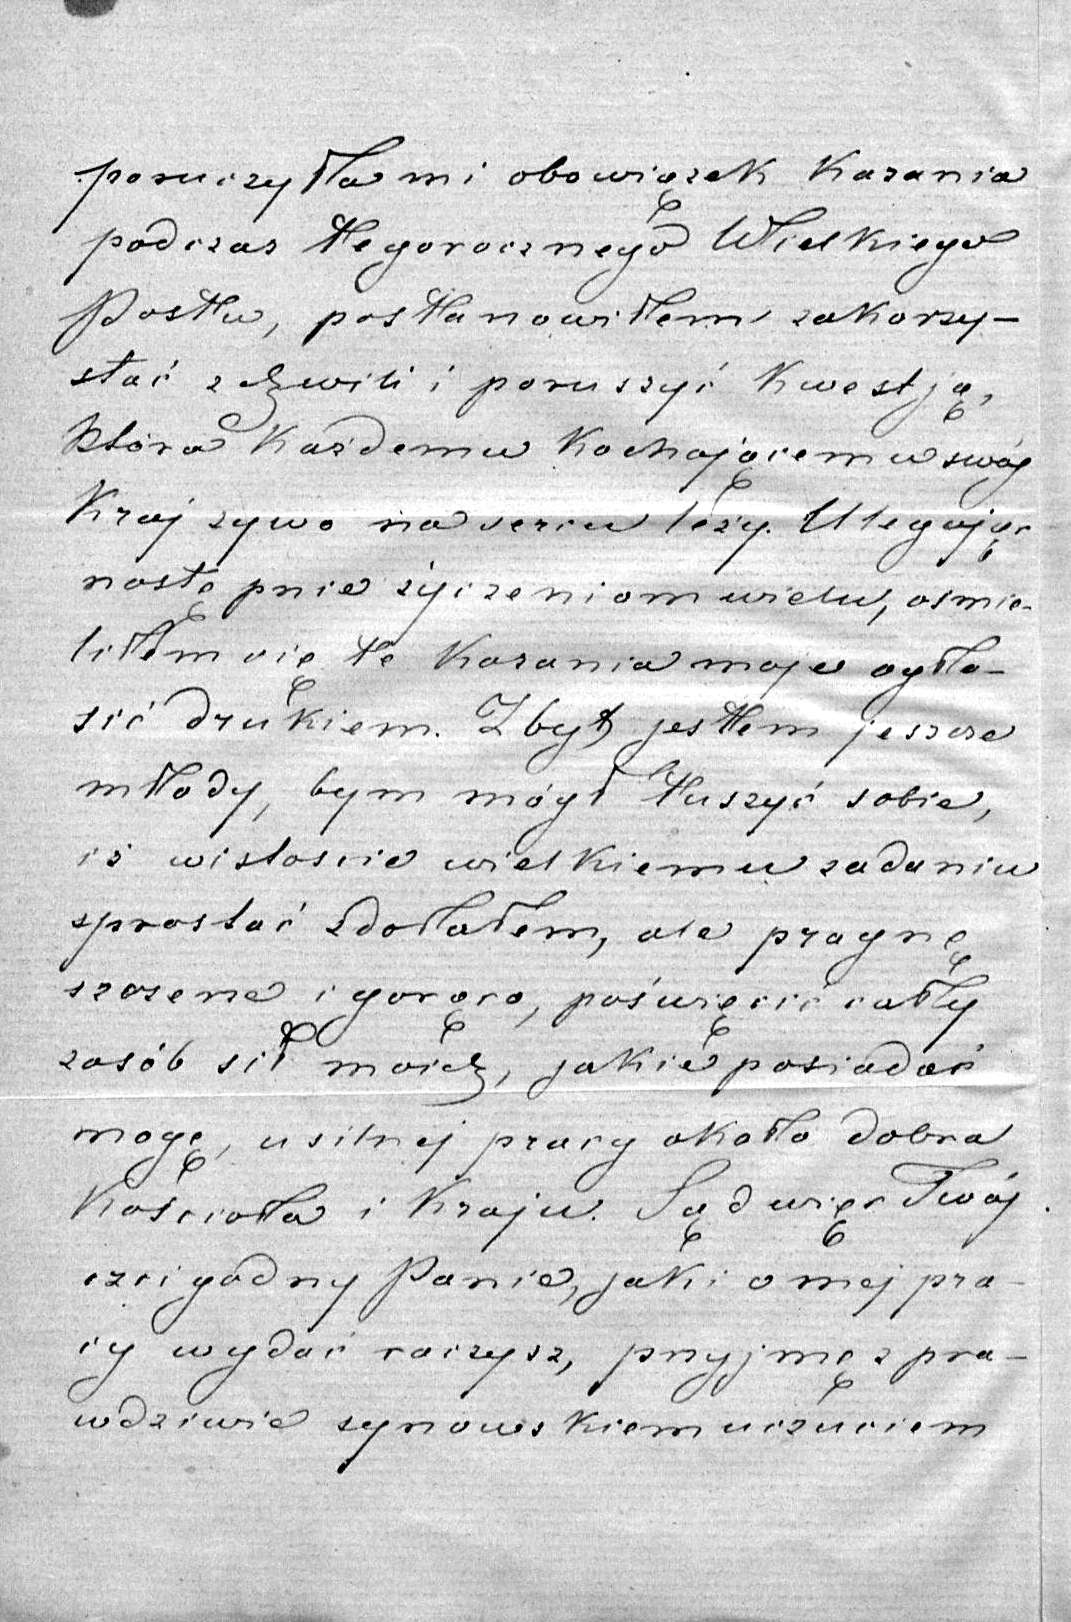 poruczyła mi obowiązek kazania
podczas tegorocznego Wielkiego
Postu, postanowiłem zakorzy-
stać z chwili i poruszyć kwestją,
która każdemu kochającemu swój
kraj żywo na sercu leży. Ulegając
następnie życzeniom wielu, ośmie-
liłem się te kazania moje ogło-
sić drukiem. Zbyt jestem jeszcze
młody, bym mógł tuszyć sobie,
iż wistocie wielkiemu zadaniu
sprostać zdołałem, ale pragnę
szczerze i gorąco, poświęcić cały
zasób sił moich, jakie posiadać
mogę, usilnej pracy około dobra
Kościoła i Kraju. Sąd więc Twój
czcigodny Panie, jaki o mej pra-
cy wydać raczysz, przyjmę z pra-
wdziwie synowskiem uczuciem